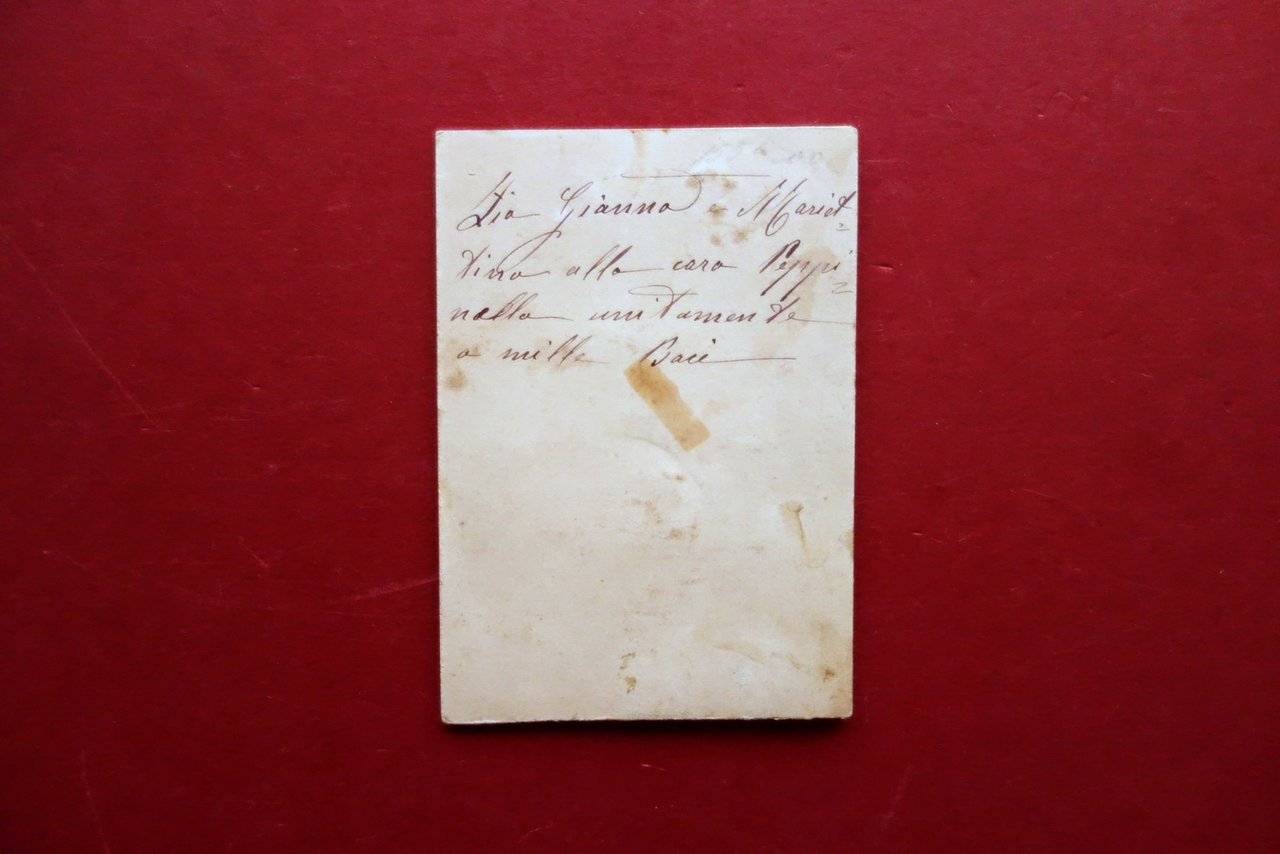 Zia Gianna e Mariet=
tina alla cara Peppi=
nella unitamente
a mille Baci